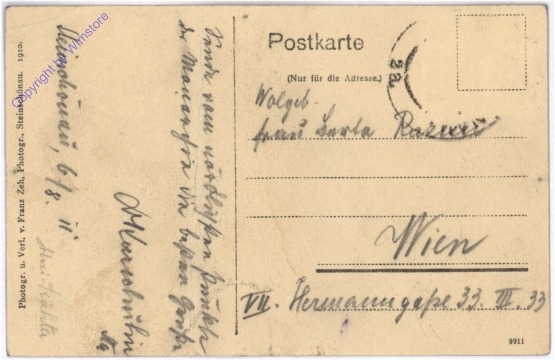 Photogr. u. Verl. v. Franz Zeh, Photogr., Steinschönau. 1910.
Copyright by Wilmstore
Steinschönau, 6/8. 11
Sende vom nördlichsten Punkte
der Monarchie die besten Grüße
Postkarte
(Nur für die Adresse.)
2a
Wolgeb.
Frau Berta
Wien
VII. Hermanngaße 33. III. 33
9911